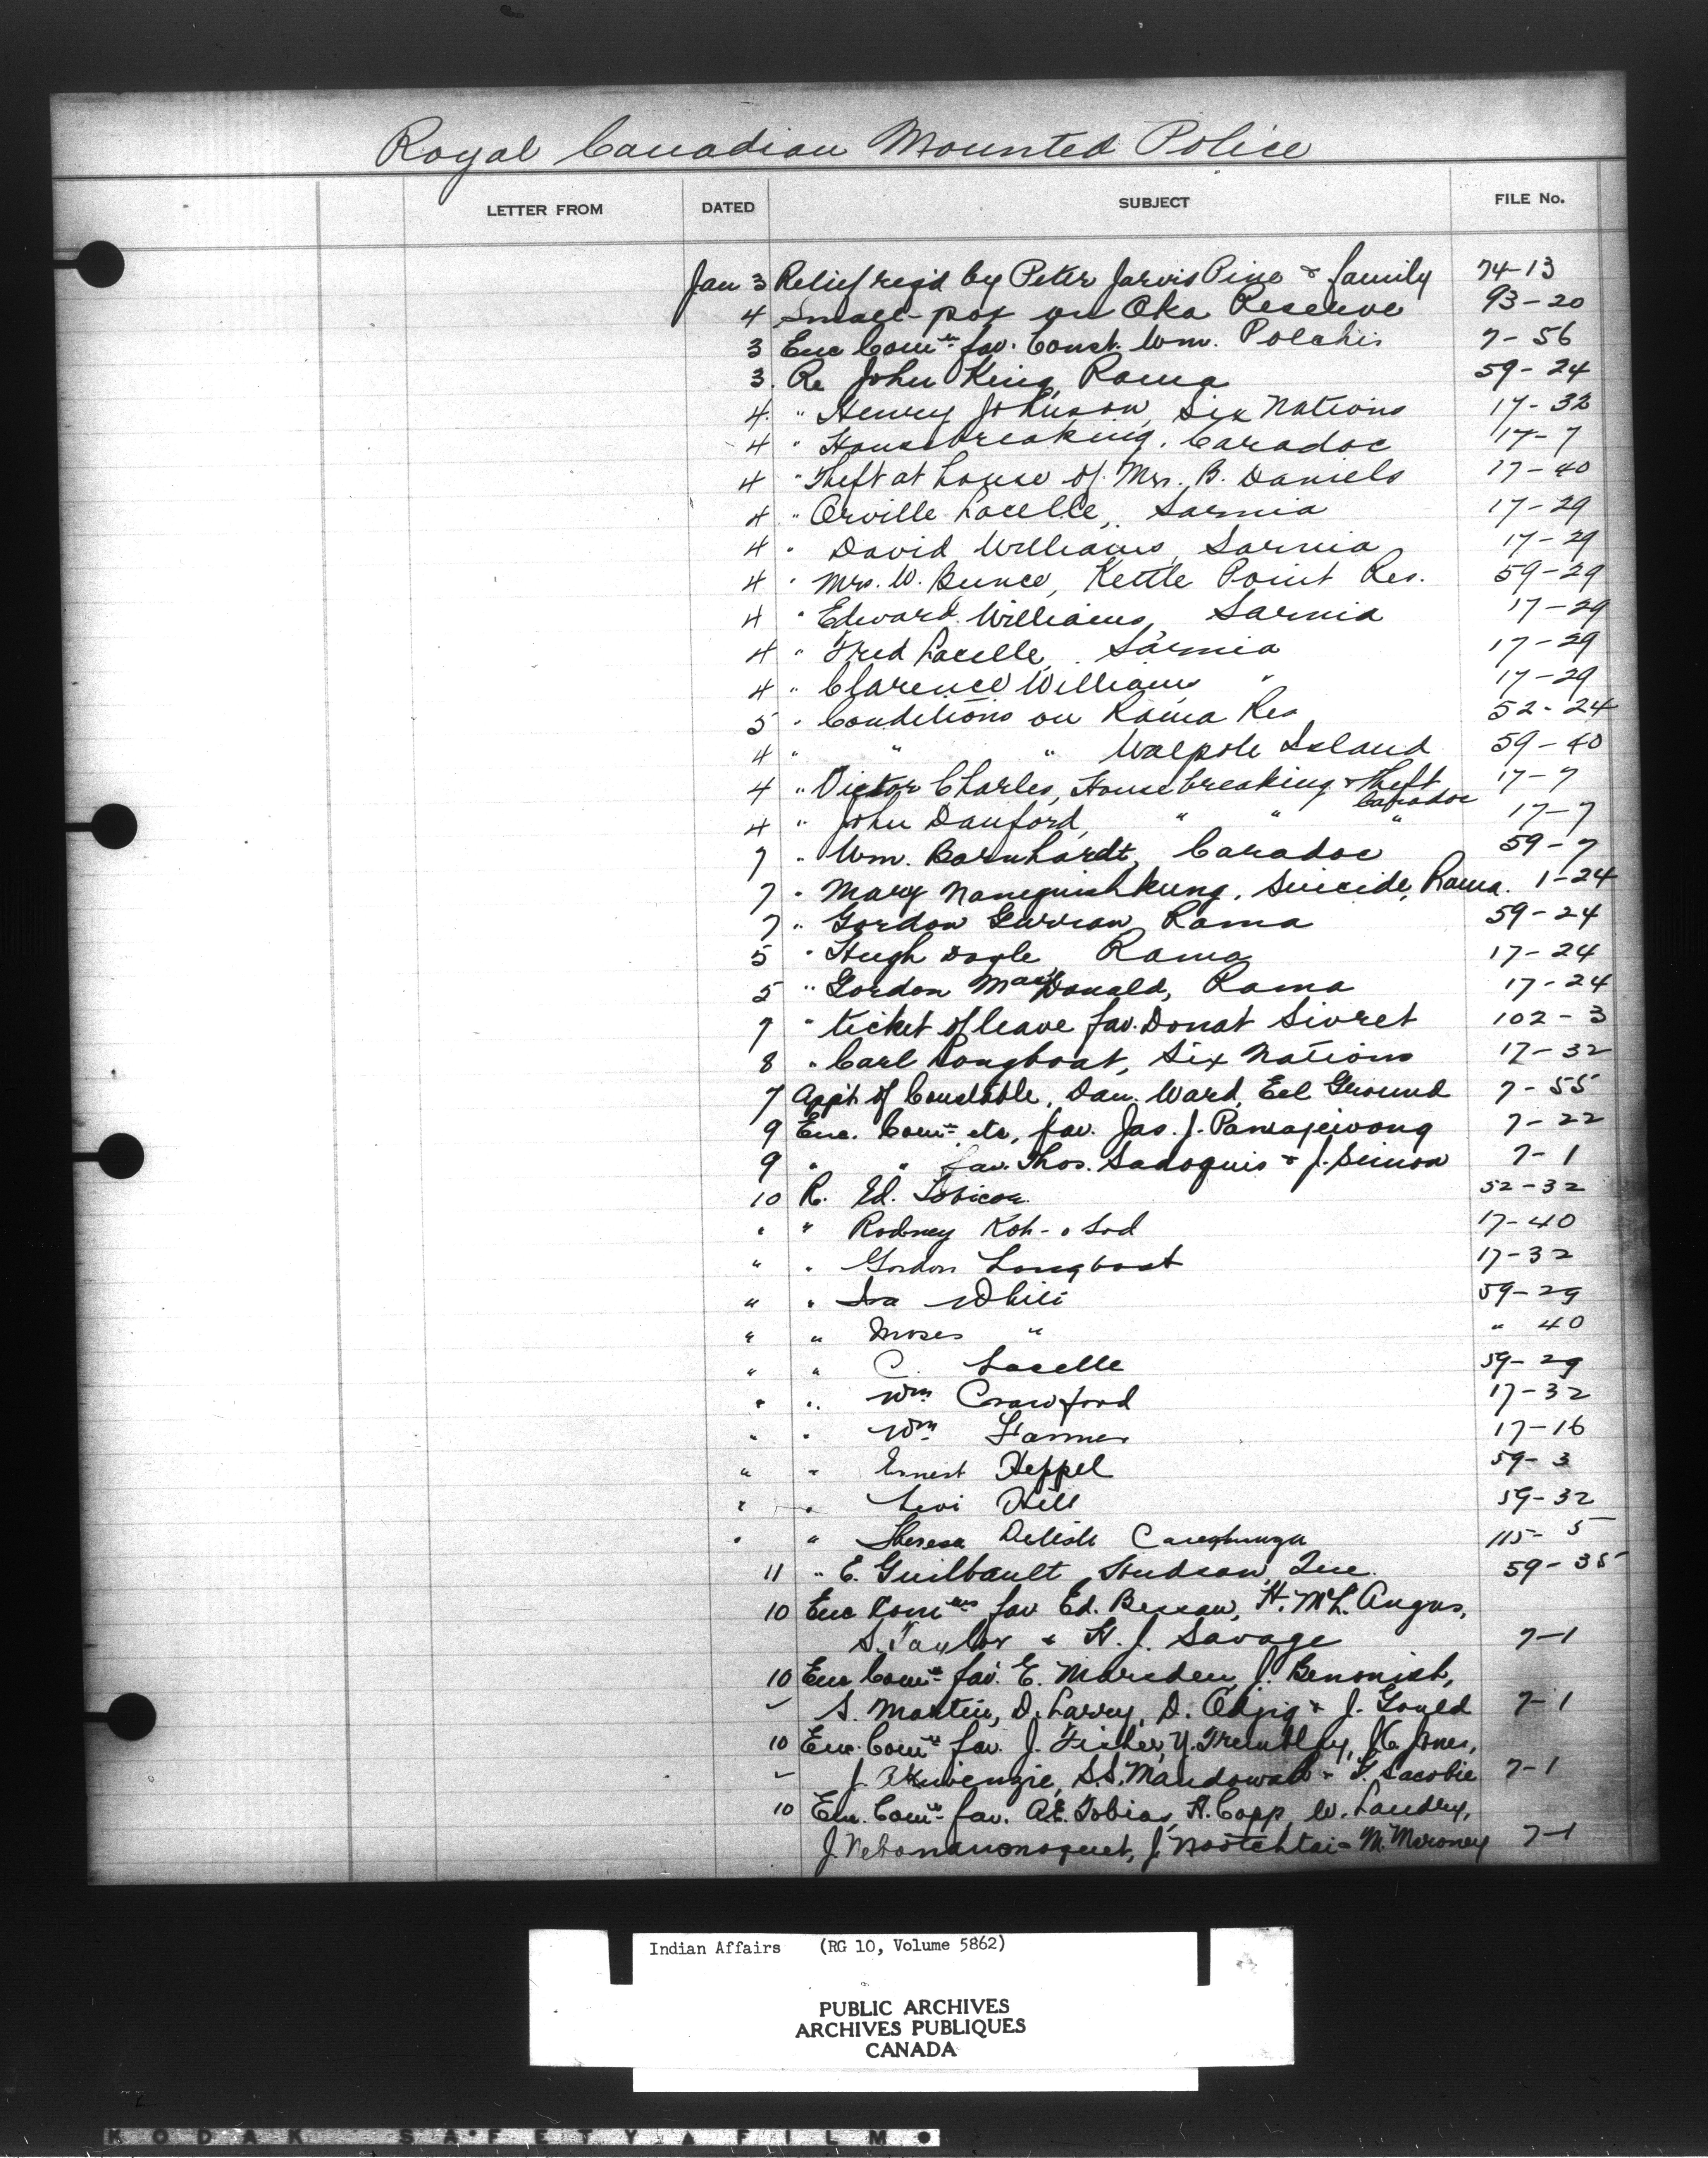 Royal Canadian Mounted Police
LETTER FROM DATED SUBJECT FILE No.
Jan 3 Relief req'd by Peter Jarvis Pine & family 74-13
4 Small-pox on Oka Reserve 93-20
3 Enc Com'n fav. Const. Wm. Polchis 7-56
3. Re John King, Rama 59-24
4. " Henry Johnson, Six Nations 17-32
4 " Housebreaking, Caradoc 17-7
4 " Theft at house of Mrs. B. Daniels 17-40
4 " Orville Lacelle, Sarnia 17-29
4 " David Williams, Sarnia 17-29
4 " Mrs. W. Bunce, Kettle Point Res. 59-29
4 " Edward Williams, Sarnia 17-29
4 " Fred Lacelle, Sarnia 17-29
4 " Clarence Williams " 17-29
5 " Conditions on Rama Res 52-24
4 " " " Walpole Island 59-40
4 " Victor Charles, Housebreaking & Theft 17-7
Caradoc
4 " John Danford, " " " 17-7
7 " Wm. Barnhardt, Caradoc 59-7
7 " Mary Nanequishkung, Suicide, Rama. 1-24
7 " Gordon Rama 59-24
5 " Hugh Doyle Rama 17-24
5 " Gordon MacDonald, Rama 17-24
7 " ticket of leave fav. Donat Sivret 102-3
8 " Carl Longboat, Six Nations 17-32
7 App't of Constable, Dan. Ward, Eel Ground 7-55
9 Enc. Com'n etc, fav. Jas. J. 7-22
9 " " fav. Thos. Sadoquis & J. Simon 7-1
10 R. Ed. Tobicoe. 52-32
" " Rodney Koh-o 17-40
" " Gordon Longboat 17-32
" " Ira White 59-29
" " Moses " " 40
" " C. Lacelle 59-29
" " Wm Crawford 17-32
" " Wm Farmer 17-16
" " Ernest Heppel 59-3
" " Levi Hill 59-32
" " Theresa Delisle Caughnawaga 115-5
11 " E. Guilbault, Hudson, Que. 59-35
10 Enc Com'ns fav Ed. H. McL. Angus,
S. Taylor & H. J. Savage 7-1
10 Enc Com'ns fav. E. Marsden, J. Benonish,
S. Martin, D. Larry, D. Odjig & J. Gould 7-1
10 Enc. Com'ns fav. J. Fisher, Y. Tremblay, Jones,
J. Akiwenzie, S.S. Mandowab & Sacobie 7-1
10 Enc. Com'ns fav. A.E. Tobias, H. Copp, W. Landry,
J. Nebonaionoquet, J. Nootchtai & M. Moroney 7-1
Indian Affairs (RG 10, Volume 5862)
PUBLIC ARCHIVES
ARCHIVES PUBLIQUES
CANADA
KODAK SAFETY FILM